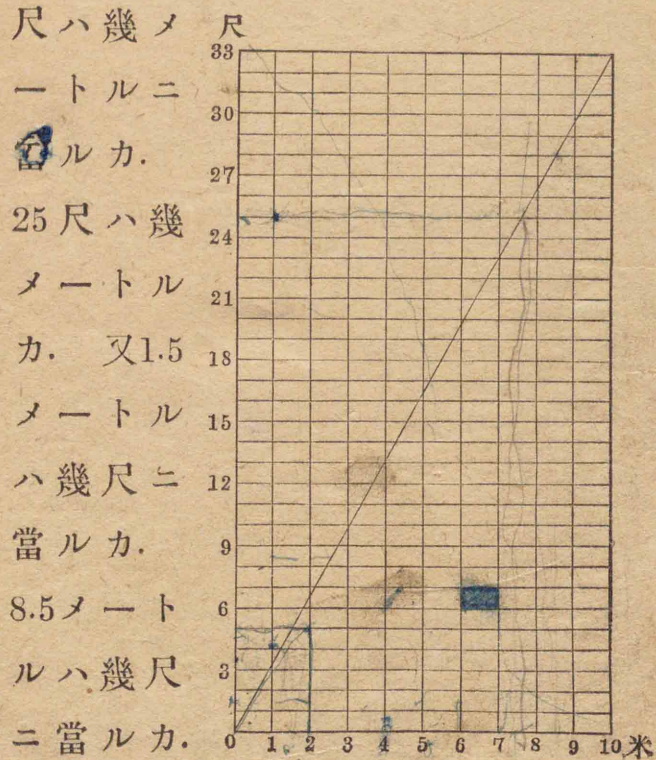 尺ハ幾メ
ートルニ
當ルカ.
25尺ハ幾
メートル
カ. 又1.5
メートル
ハ幾尺ニ
當ルカ.
8.5メート
ルハ幾尺
ニ當ルカ.
尺
33
30
27
24
21
18
15
12
9
6
3
0 1 2 3 4 5 6 7 8 9 10 米